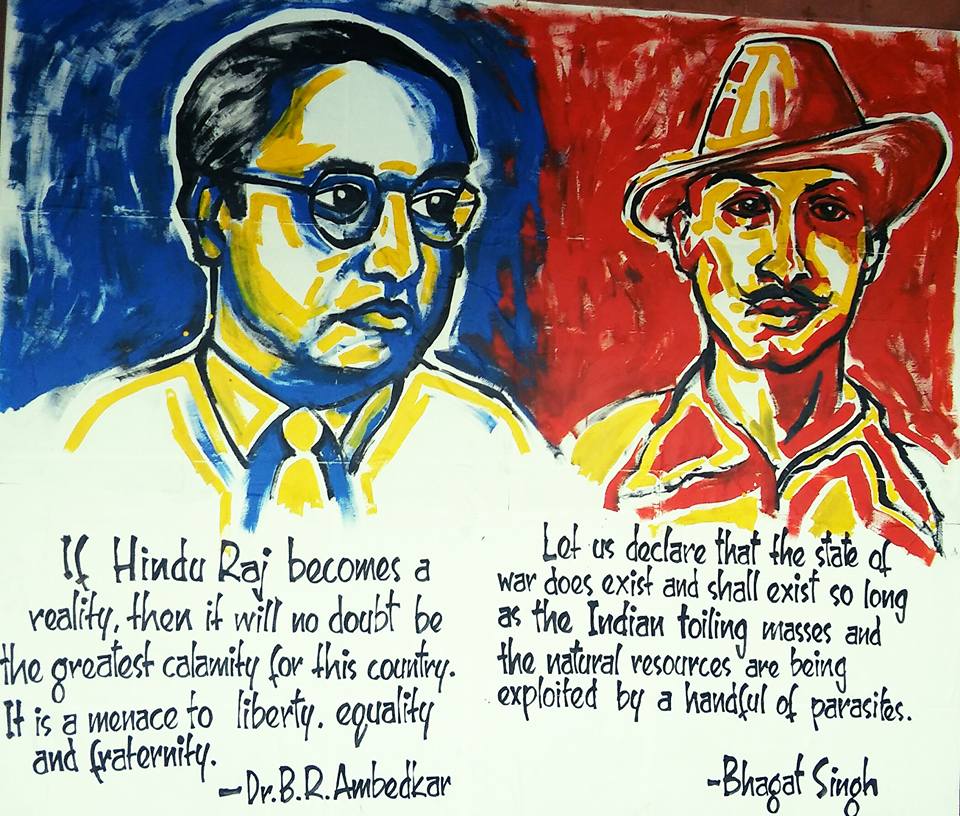 If Hindu Raj becomes a
reality, then it will no doubt be
the greatest calamity for this country.
It is a menace to liberty. equality
and fraternity.
-Dr.B.R.Ambedkar
Let us declare that the state of
war does exist and shall exist so long
as the Indian toiling masses and
the natural resources are being
exploited by a handful of parasites.
-Bhagat Singh